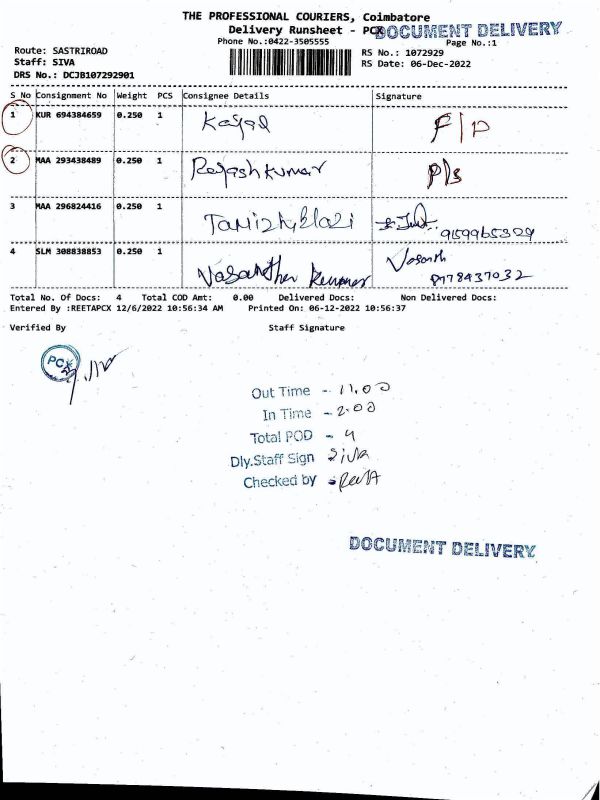 THE PROFESSIONAL COURIERS, Coimbatore
Delivery Runsheet - PCX DOCUMENT DELIVERY
Phone No.:0422-3505555 Page No.:1
Route: SASTRIROAD RS No.: 1072929
Staff: SIVA RS Date: 06-Dec-2022
DRS No.: DCJB107292901
S No Consignment No Weight PCS Consignee Details Signature
1 KUR 694384659 0.250 1 Kayal F/P
2 MAA 293438489 0.250 1 Rajash kumar P/s
3 MAA 296824416 0.250 1 9159965329
4 SLM 308838853 0.250 1 Vasantha kumar Vasanth
8778437032
Total No. Of Docs: 4 Total COD Amt: 0.00 Delivered Docs: Non Delivered Docs:
Entered By :REETAPCX 12/6/2022 10:56:34 AM Printed On: 06-12-2022 10:56:37
Verified By Staff Signature
PCX
Out Time - 11.00
In Time - 2.00
Total POD - 4
Dly.Staff Sign Siva
Checked by ReetA
DOCUMENT DELIVERY